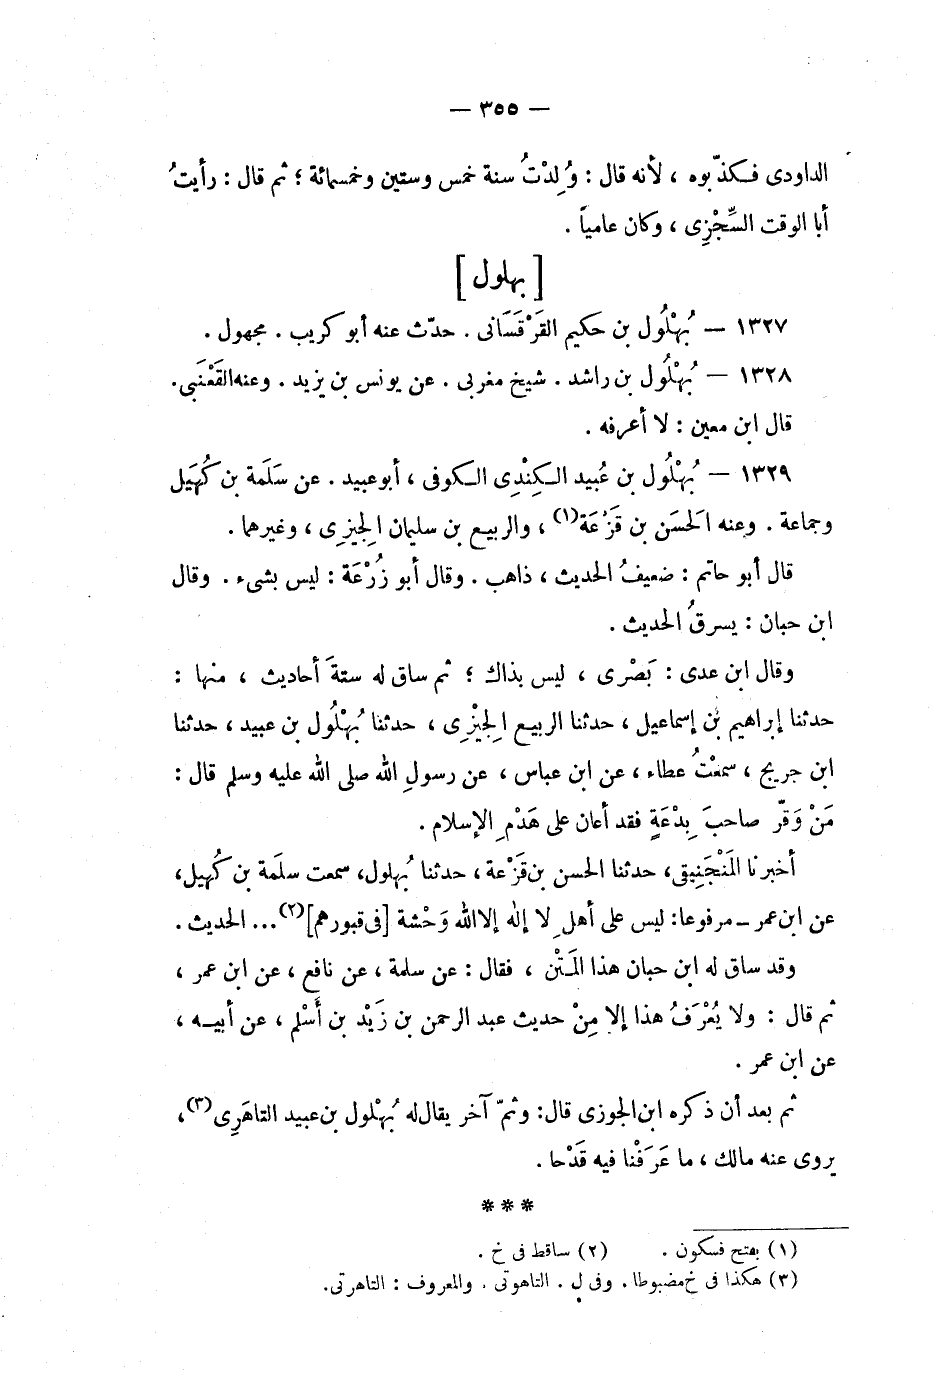 — ٣٥٥ —
الداودى فكذّبوه ، لأنه قال : وُلِدْتُ سنة خمس وستين وخمسمائة ؛ ثم قال : رأيتُ
أبا الوقت السِّجْزِى ، وكان عامياً .
[ بهلول ]
١٣٢٧ — بُهْلُول بن حكيم القَرْقَسَانى . حدّث عنه أبو كريب . مجهول .
١٣٢٨ — بُهْلُول بن راشد . شيخ مغربى . عن يونس بن يزيد . وعنه القَعْنَبى.
قال ابن معين : لا أعرفه .
١٣٢٩ — بُهْلُول بن عُبيد الكِنْدِى الكوفى ، أبو عبيد . عن سَلَمة بن كُهَيل
وجماعة . وعنه الحَسَن بن قَزْعَة(١) ، والربيع بن سليمان الجِيزِى ، وغيرهما .
قال أبو حاتم : ضعيفُ الحديث ، ذاهب . وقال أبو زُرْعَة : ليس بشىء . وقال
ابن حبان : يسرقُ الحديث .
وقال ابن عدى : بَصْرى ، ليس بذاك ؛ ثم ساق له ستةَ أحاديث ، منها :
حدثنا إبراهيم بن إسماعيل ، حدثنا الربيع الجِيْزِى ، حدثنا بُهْلُول بن عبيد ، حدثنا
ابن جريج ، سمعْتُ عطاء ، عن ابن عباس ، عن رسولِ الله صلى الله عليه وسلم قال :
مَنْ وَقّر صاحبَ بِدْعَةٍ فقد أعان على هَدْمِ الإسلام .
أخبرنا المَنْجَنِيقى، حدثنا الحسن بن قَزْعة ، حدثنا بُهلول، سمعت سلَمة بن كُهيل،
عن ابن عمر – مرفوعا: ليس على أهلِ لا إله إلا الله وَحْشة [فى قبورهم](٢)... الحديث .
وقد ساق له ابن حبان هذا المَتْن ، فقال : عن سلمة ، عن نافع ، عن ابن عمر ،
ثم قال : ولا يُعْرَفُ هذا إلا مِنْ حديث عبد الرحمن بن زَيْد بن أَسْلم ، عن أبيه ،
عن ابن عمر .
ثم بعد أن ذكره ابن الجوزى قال: وثمّ آخر يقال له بُهْلول بن عبيد التاهَرِى(٣)،
يروى عنه مالك ، ما عَرَفْنا فيه قَدْحا .
* * *
(١) بفتح فسكون . (٢) ساقط فى خ .
(٣) هكذا فى خ مضبوطا . وفى ل . التاهوتى . والمعروف : التاهرتى.